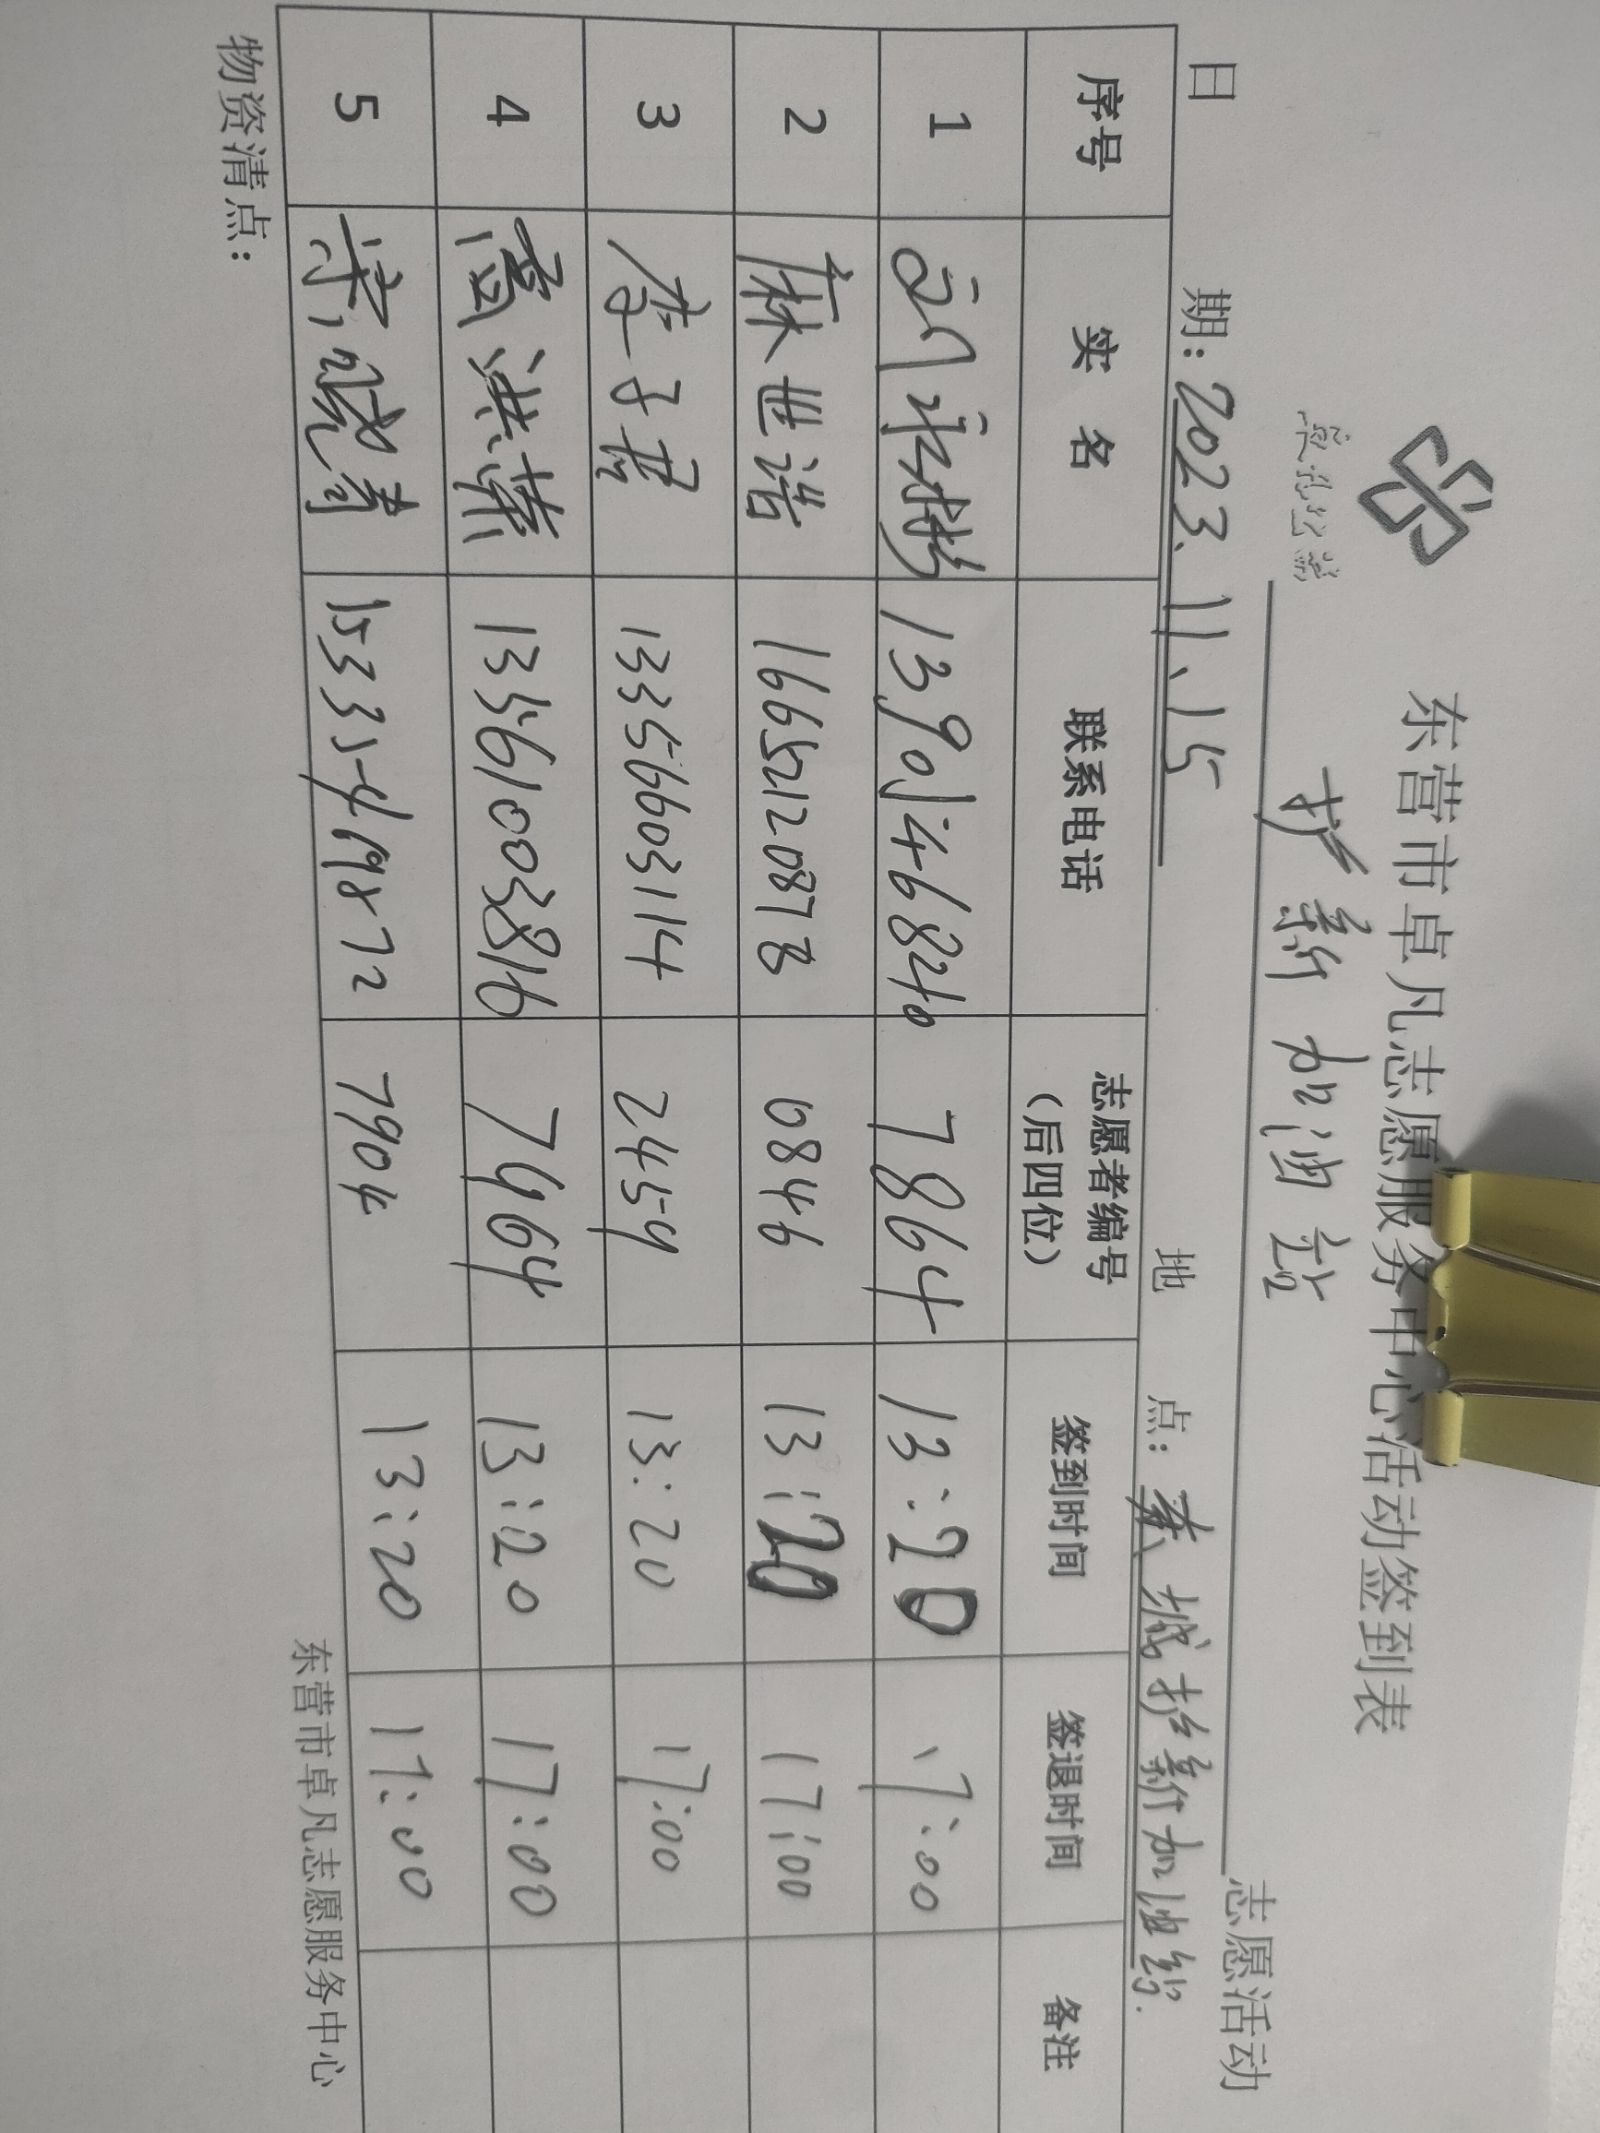 东营市卓凡志愿服务中心活动签到表
护薪加油站 志愿活动
日 期: 2023.11.15 地 点: 东城护薪加油站.
序号 实 名 联系电话 志愿者编号（后四位） 签到时间 签退时间 备注
1 13901468240 7864 13:20 17:00
2 麻世浩 16652120878 0846 13:20 17:00
3 李子君 13356603114 2459 13:20 17:00
4 高洪 13561003816 7964 13:20 17:00
5 宋晓青 15335419872 7904 13:20 17:00
物资清点:
东营市卓凡志愿服务中心